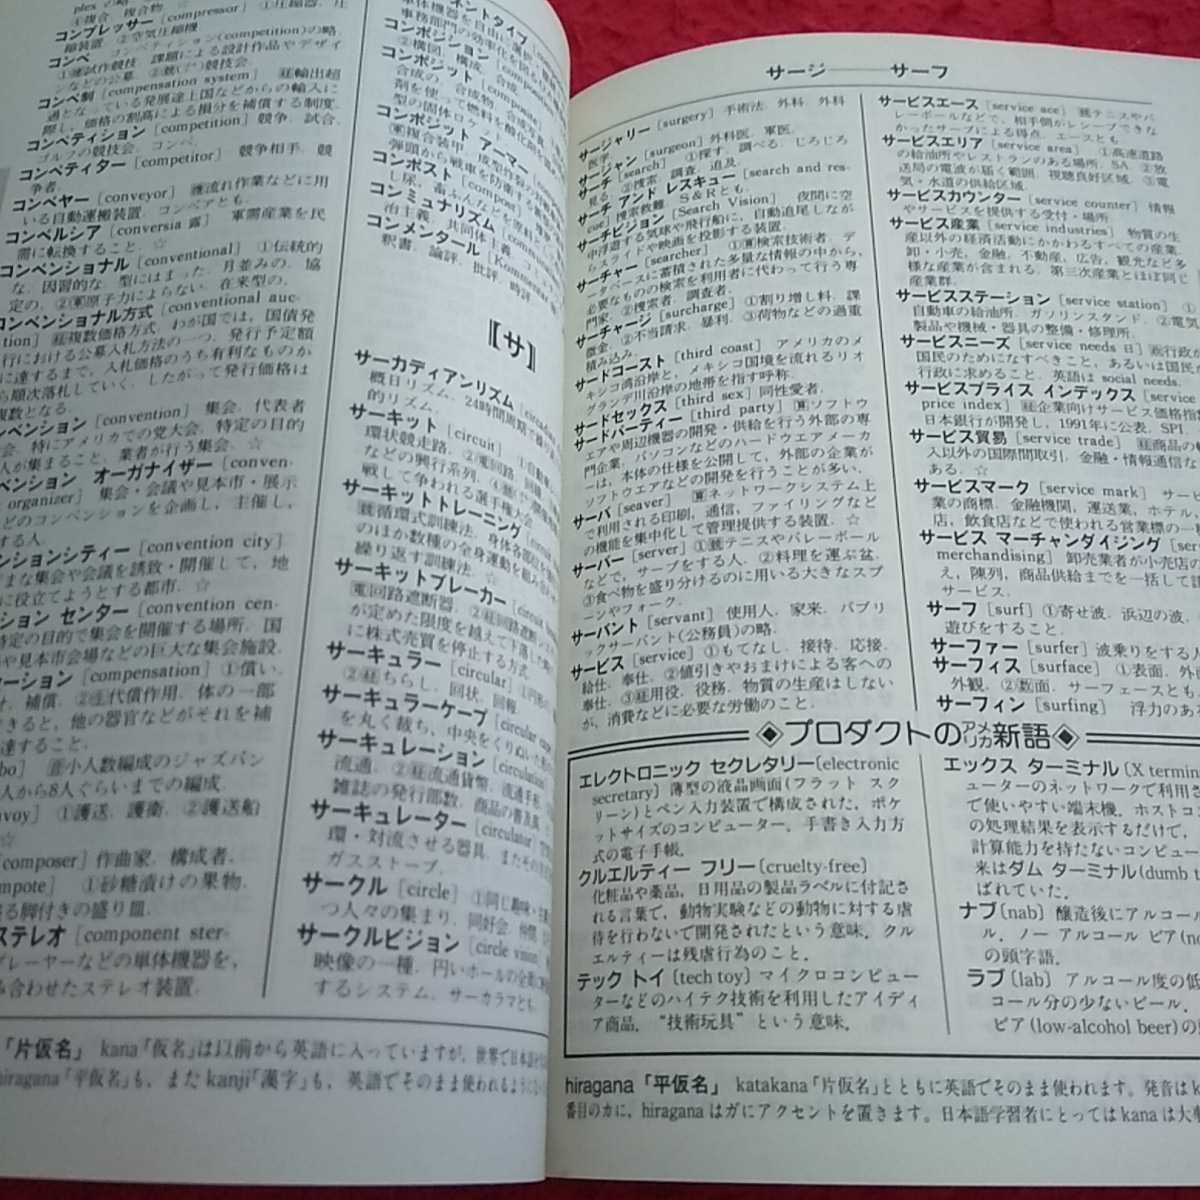 plex の略
④複合. 複合物. ☆
コンプレッサー [compressor] ①圧縮器. 圧
縮装置. ②空気圧縮機
コンペ コンペティション(competition)の略.
試作競技. 課題による設計作品やデザイ
ンなどの公募.
コンペ制 [compensation system] 輸出超
過となっている発展途上国などからの輸入に
際し, 価格の割高による損分を補償する制度.
コンペティション [competition] 競争. 試合.
ゴルフの競技会. コンペ.
コンペティター [competitor] 競争相手. 競
争者.
コンベヤー [conveyor] 流れ作業などに用
いる自動運搬装置. コンベアとも.
コンベルシア [conversia 露] 軍需産業を民
需に転換すること. ☆
コンベンショナル [conventional] ①伝統的
な. 因習的な. 型にはまった. 月並みの. 協
定の. ②原子力によらない. 在来型の.
コンベンショナル方式 [conventional auc-
tion] 複数価格方式. わが国では, 国債発
行における公募入札方法の一つ. 発行予定額
に達するまで, 入札価格のうち有利なものか
ら順次落札していく. したがって発行価格は
複数となる.
ンベンション [convention] 集会. 代表者
会. 特にアメリカでの党大会. 特定の目的
人が集まること. 業者が行う集会. ☆
ベンション オーガナイザー [conven-
organizer] 集会・会議や見本市・展示
どのコンベンションを企画し, 主催し,
する人.
ンションシティー [convention city]
まな集会や会議を誘致・開催して, 地
に役立てようとする都市. ☆
ション センター [convention cen-
特定の目的で集会を開催する場所. 国
や見本市会場などの巨大な集会施設.
ーション [compensation] ①償い.
補償. ②代償作用. 体の一部
できると, 他の器官などがそれを補
達すること.
bo] 小人数編成のジャズバン
人から8人ぐらいまでの編成.
nvoy] ①護送. 護衛. ②護送船
☆
[composer] 作曲家. 構成者.
mpote] ①砂糖漬けの果物.
る脚付きの盛り皿.
ステレオ [component ster-
プレーヤーなどの単体機器を,
み合わせたステレオ装置.
ネントタイプ
単体機器を自由に選
事務部門の効率化を図
コンポジション
②構図. 構成. 合成
コンポジット
合成の. 合成物.
剤を使って燃料を酸化
型の固体ロケット
コンポジット アーマー
複合装甲. 成型炸薬
弾頭から戦車を防衛する
コンポスト [compost]
し尿, 畜ふんなどを原料と
コンミュナリズム
治主義. 共同体主義.
コンメンタール [Kommentar 独]
釈書. 論評. 批評. 時評.
【サ】
サーカディアンリズム
概日リズム. 24時間周期で
的リズム.
サーキット [circuit] ①自動車
環状競走路. ②回路. 回線.
などの興行系列.
戦して争われる選手権大会.
サーキットトレーニング
循環式訓練法. 身体各部位
のほか数種の全身運動を組み合わせ
繰り返す訓練法. ☆
サーキットブレーカー
回路遮断器.
が定めた限度を越えて下落した場
に株式売買を停止する方式.
サーキュラー [circular] ①円形の
②ちらし. 回状. 回報.
サーキュラーケープ [circular cape]
を丸く裁ち, 中央をくりぬいた形
サーキュレーション [circulation]
流通. ②流通貨幣. 流通手形.
雑誌の発行部数. 商品の普及度.
サーキュレーター [circulator]
環・対流させる器具. またその
ガスストーブ.
サークル [circle] ①同じ趣味・
つ人々の集まり. 同好会. 仲間.
サークルビジョン [circle vision]
映像の一種. 円いホールの全壁に
するシステム. サーカラマとも.
「片仮名」 kana「仮名」は以前から英語に入っていますが, 世界で日本語
hiragana「平仮名」も, また kanji「漢字」も, 英語でそのまま使われるように
サージ——サーフ
サージャリー [surgery] 手術法. 外科. 外科
医学.
サージャン [surgeon] 外科医. 軍医.
サーチ [search] ①探す. 調べる. じろじろ
見る. ②捜索. 調査. 追及.
サーチ アンド レスキュー [search and res-
cue] 捜索救難. S&Rとも.
サーチビジョン [Search Vision] 夜間に空
中浮遊する気球や飛行船に, 自動追尾しなが
らスライドや映画を投影する装置.
サーチャー [searcher] ①検索技術者. デ
ータベースに蓄積された多量な情報の中から,
必要なものの検索を利用者に代わって行う専
門家. ②捜索者. 調査者.
サーチャージ [surcharge] ①割り増し料. 課
徴金. ②不当請求. 暴利. ③荷物などの過重
積み込み.
サードコースト [third coast] アメリカのメ
キシコ湾沿岸と, メキシコ国境を流れるリオ
グランデ川沿岸の地帯を指す呼称.
サードセックス [third sex] 同性愛者.
サードパーティー [third party] ソフトウ
エアや周辺機器の開発・供給を行う外部の専
門企業. パソコンなどのハードウエアメーカ
ーは, 本体の仕様を公開して, 外部の企業が
ソフトウエアなどの開発を行うことが多い.
サーバ [seaver] ネットワークシステム上
で利用される印刷, 通信, ファイリングなど
の機能を集中化して管理提供する装置. ☆
サーバー [server] ①テニスやバレーボール
などで, サーブをする人. ②料理を運ぶ盆.
③食べ物を盛り分けるのに用いる大きなスプ
ーンやフォーク.
サーバント [servant] 使用人. 家来. パブリ
ックサーバント(公務員)の略.
サービス [service] ①もてなし. 接待. 応接.
給仕. 奉仕. ②値引きやおまけによる客への
奉仕. ③用役. 役務. 物質の生産はしない
が, 消費などに必要な労働のこと.
サービスエース [service ace] テニスやバ
レーボールなどで, 相手側がレシーブできな
かったサーブによる得点. エースとも.
サービスエリア [service area] ①高速道路
の給油所やレストランのある場所. SA. ②放
送局の電波が届く範囲. 視聴良好区域. ③電
気・水道の供給区域.
サービスカウンター [service counter] 情報
やサービスを提供する受付・場所.
サービス産業 [service industries] 物質の生
産以外の経済活動にかかわるすべての産業.
卸・小売, 金融, 不動産, 広告, 観光など多
様な産業が含まれる. 第三次産業とほぼ同じ
産業群.
サービスステーション [service station] ①
自動車の給油所. ガソリンスタンド. ②電気
製品や機械・器具の整備・修理所.
サービスニーズ [service needs 日] 行政が
国民のためになすべきこと, あるいは国民が
行政に求めること. 英語は social needs.
サービスプライス インデックス [service
price index] 企業向けサービス価格指
日本銀行が開発し, 1991年に公表. SPI.
サービス貿易 [service trade] 商品の輸
入以外の国際間取引. 金融・情報通信な
ある. ☆
サービスマーク [service mark] サー
業の商標. 金融機関, 運送業, ホテル,
店, 飲食店などで使われる営業標の一
サービス マーチャンダイジング [ser
merchandising] 卸売業者が小売店の
え, 陳列, 商品供給までを一括して
サービス.
サーフ [surf] ①寄せ波. 浜辺の波.
遊びをすること.
サーファー [surfer] 波乗りをする人
サーフィス [surface] ①表面. 外
外観. ②面. サーフェースとも
サーフィン [surfing] 浮力のある
◈プロダクトのアメリカ新語◈
エレクトロニック セクレタリー(electronic
secretary) 薄型の液晶画面(フラット スク
リーン)とペン入力装置で構成された, ポケ
ットサイズのコンピューター. 手書き入力方
式の電子手帳.
クルエルティー フリー(cruelty-free)
化粧品や薬品, 日用品の製品ラベルに付記さ
れる言葉で, 動物実験などの動物に対する虐
待を行わないで開発されたという意味. クル
エルティーは残虐行為のこと.
テック トイ(tech toy) マイクロコンピュー
ターなどのハイテク技術を利用したアイディ
ア商品. “技術玩具”という意味.
エックス ターミナル(X termin
ューターのネットワークで利用さ
で使いやすい端末機. ホストコ
の処理結果を表示するだけで,
計算能力を持たないコンピュー
来はダム ターミナル(dumb t
ばれていた.
ナブ(nab) 醸造後にアルコール
ル. ノー アルコール ビア(no
の頭字語.
ラブ(lab) アルコール度の低
コール分の少ないビール.
ビア(low-alcohol beer)の
hiragana「平仮名」 katakana「片仮名」とともに英語でそのまま使われます. 発音は k
番目のカに, hiragana はガにアクセントを置きます. 日本語学習者にとっては kana は大